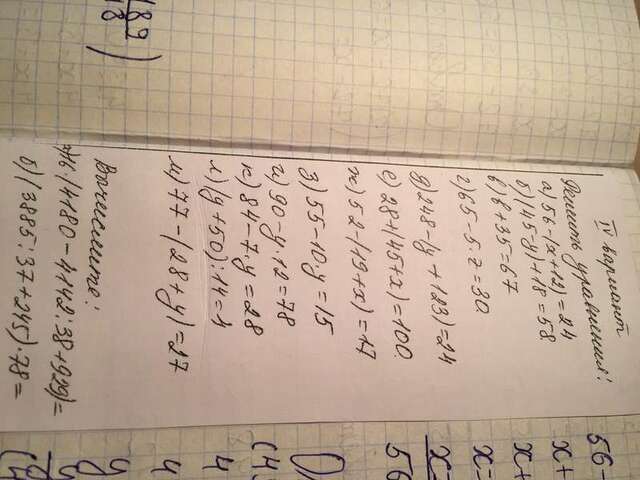 IV вариант
Решить уравнения:
а) 56-(x+12)=24
б) (45-y)+18=58
в) в+35=67
г) 65-5·z=30
д) 248-(y+123)=24
е) 28+(45+x)=100
ж) 52-(19+x)=17
з) 55-10·y=15
и) 90-y·12=78
к) 84-7·y=28
л) (y+50):14=4
м) 77-(28+y)=27
Вычислите:
(4180-4142:38+929)=
б) (3885:37+245)·78=
56-
x+
x+
x=
x=
56